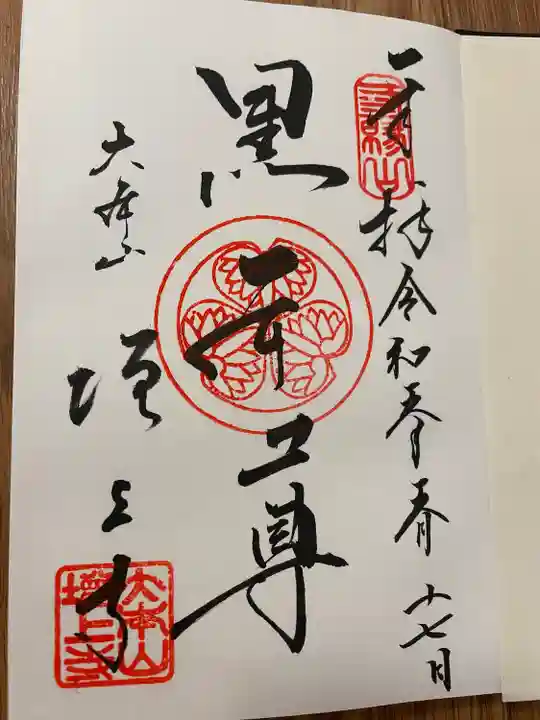 三縁山
奉拝 令和 十七日
黒本尊
大本山
増上寺
大本山
増上寺